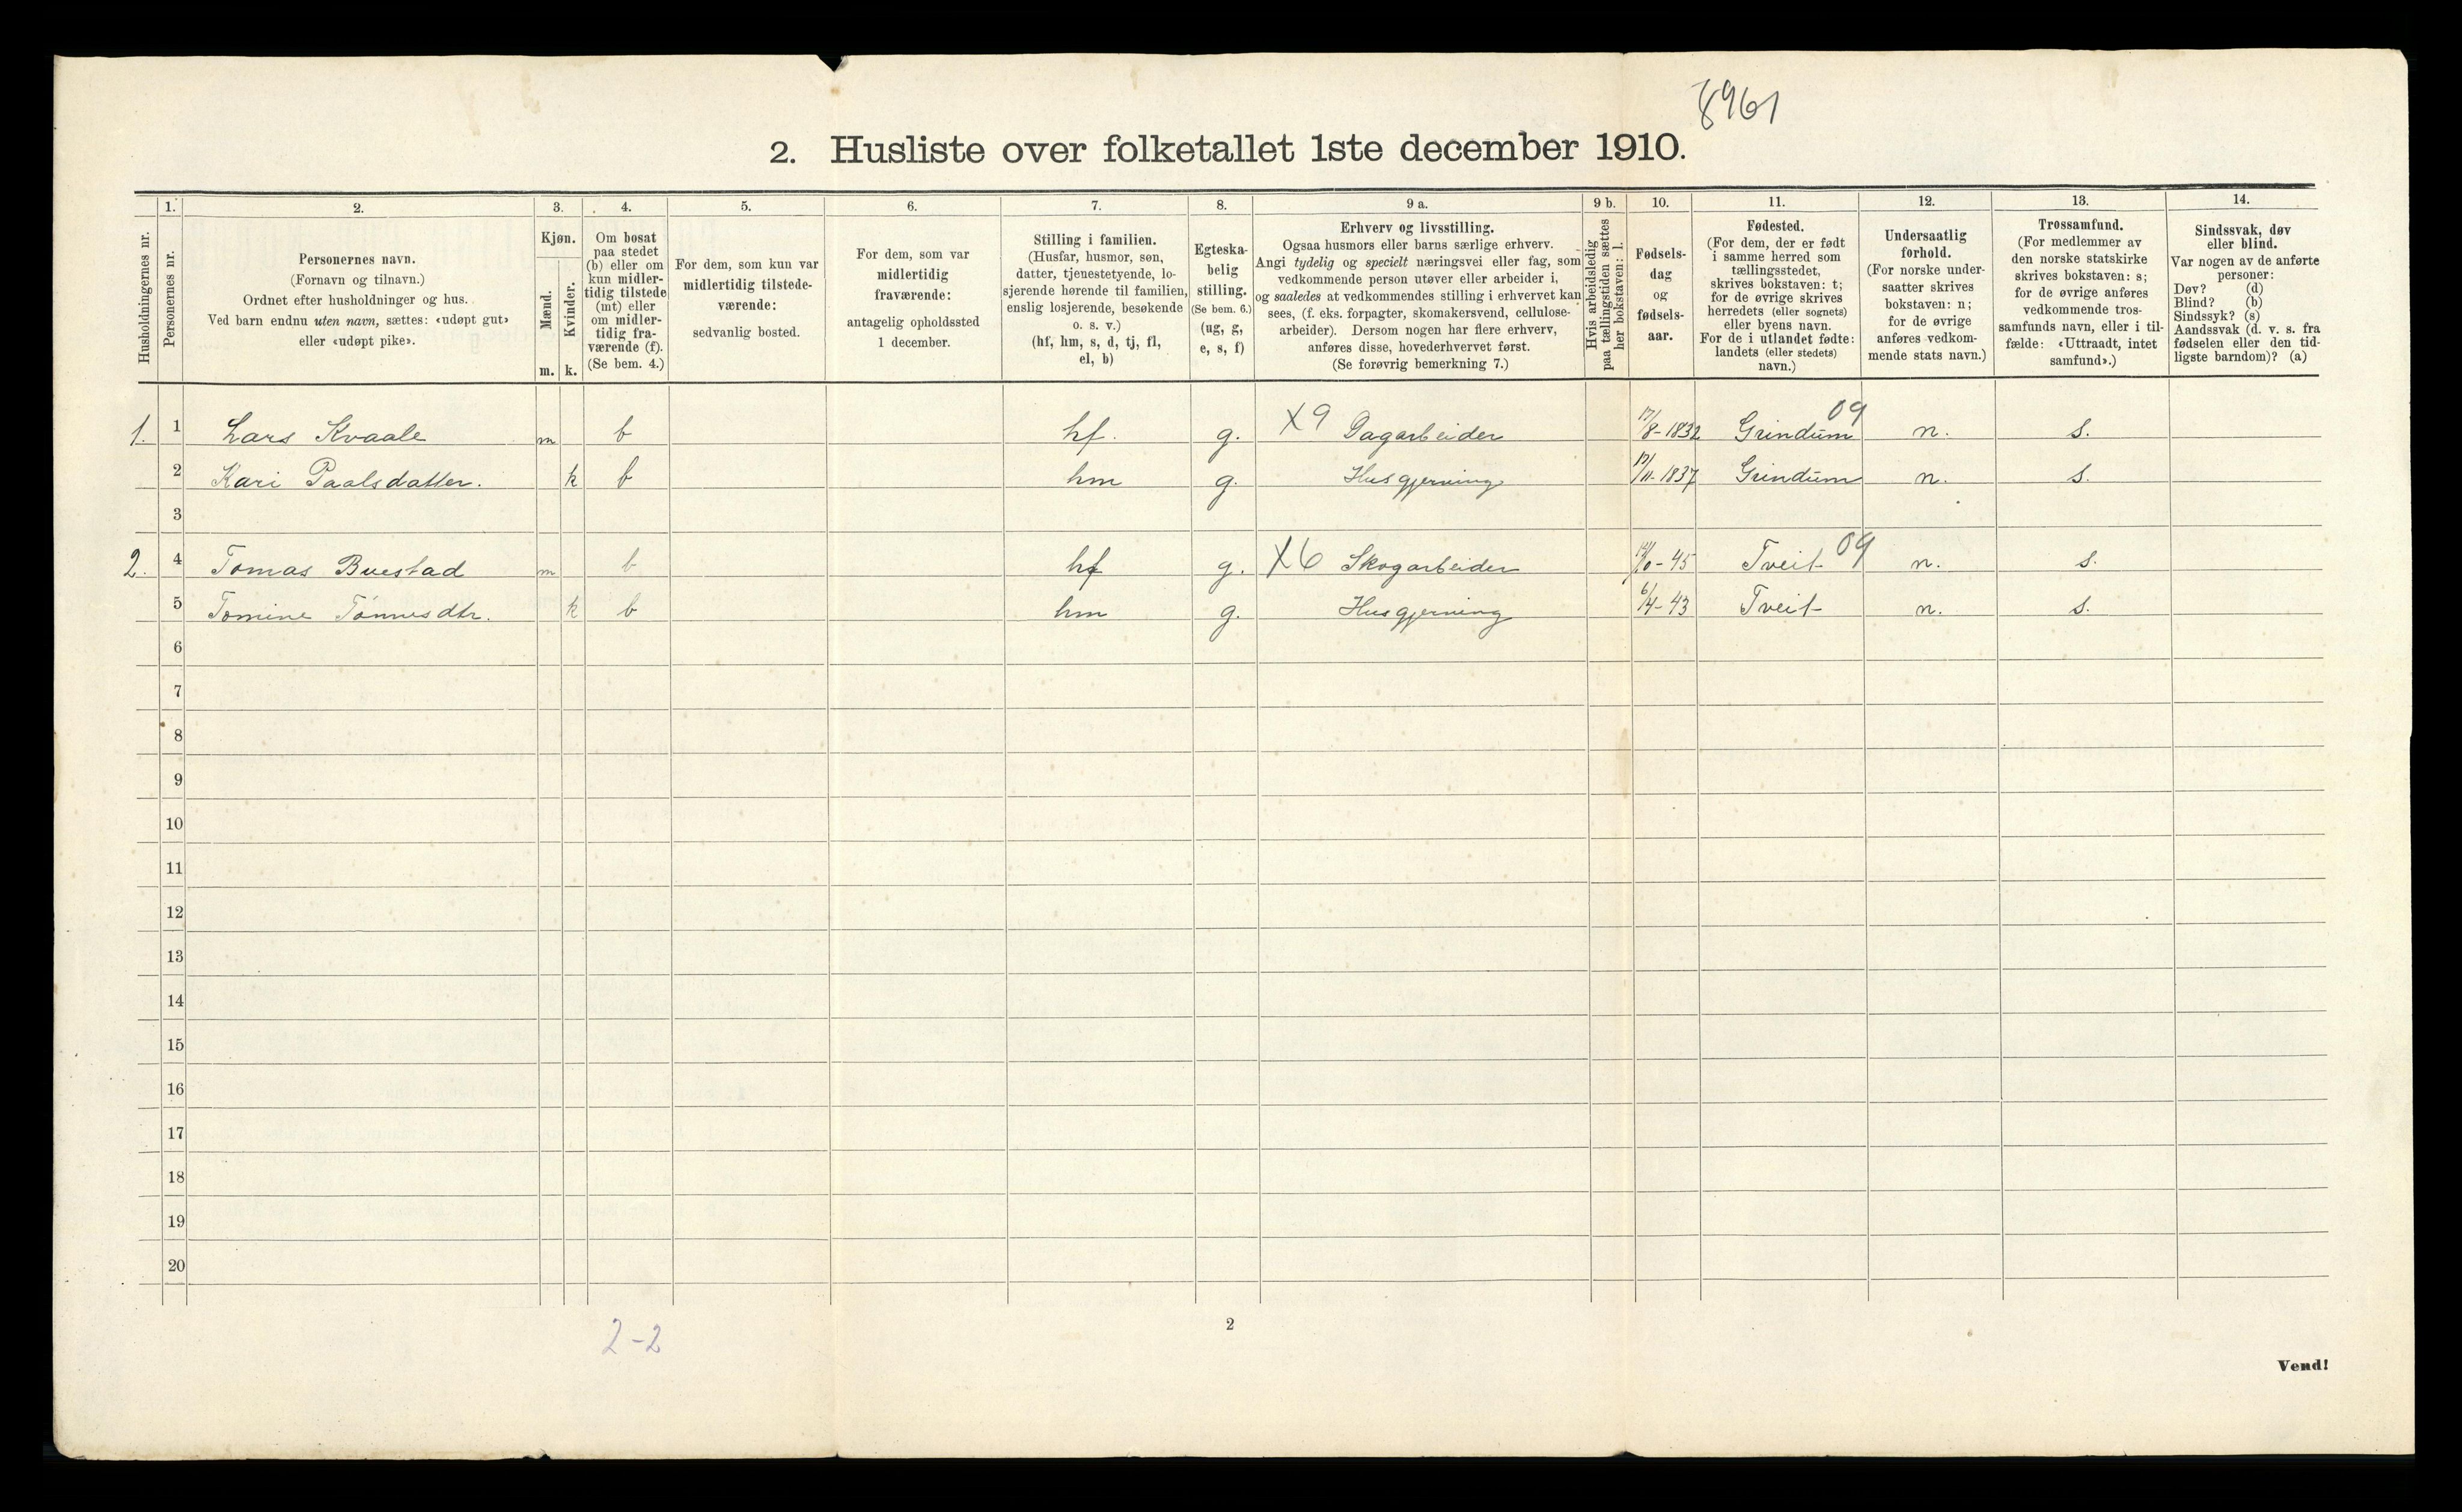 8961
2. Husliste over folketallet 1ste december 1910.
1. 2. 3. 4. 5. 6. 7. 8. 9 a. 9 b. 10. 11. 12. 13. 14.
Husholdningernes nr.
Personernes nr.
Personernes navn.
(Fornavn og tilnavn.)
Ordnet efter husholdninger og hus.
Ved barn endnu uten navn, sættes: «udøpt gut»
eller «udøpt pike».
Kjøn.
Mænd.
Kvinder.
m. k.
Om bosat
paa stedet
(b) eller om
kun midler-
tidig tilstede
(mt) eller
om midler-
tidig fra-
værende (f).
(Se bem. 4.)
For dem, som kun var
midlertidig tilstede-
værende:
sedvanlig bosted.
For dem, som var
midlertidig
fraværende:
antagelig opholdssted
1 december.
Stilling i familien.
(Husfar, husmor, søn,
datter, tjenestetyende, lo-
sjerende hørende til familien,
enslig losjerende, besøkende
o. s. v.)
(hf, hm, s, d, tj, fl,
el, b)
Egteska-
belig
stilling.
(Se bem. 6.)
(ug, g,
e, s, f)
Erhverv og livsstilling.
Ogsaa husmors eller barns særlige erhverv.
Angi tydelig og specielt næringsvei eller fag, som
vedkommende person utøver eller arbeider i,
og saaledes at vedkommendes stilling i erhvervet kan
sees, (f. eks. forpagter, skomakersvend, cellulose-
arbeider). Dersom nogen har flere erhverv,
anføres disse, hovederhvervet først.
(Se forøvrig bemerkning 7.)
Hvis arbeidsledig
paa tællingstiden sættes
her bokstaven: l.
Fødsels-
dag
og
fødsels-
aar.
Fødested.
(For dem, der er født
i samme herred som
tællingsstedet,
skrives bokstaven: t;
for de øvrige skrives
herredets (eller sognets)
eller byens navn.
For de i utlandet fødte:
landets (eller stedets)
navn.)
Undersaatlig
forhold.
(For norske under-
saatter skrives
bokstaven: n;
for de øvrige
anføres vedkom-
mende stats navn.)
Trossamfund.
(For medlemmer av
den norske statskirke
skrives bokstaven: s;
for de øvrige anføres
vedkommende tros-
samfunds navn, eller i til-
fælde: «Uttraadt, intet
samfund».)
Sindssvak, døv
eller blind.
Var nogen av de anførte
personer:
Døv? (d)
Blind? (b)
Sindssyk? (s)
Aandssvak (d. v. s. fra
fødselen eller den tid-
ligste barndom)? (a)
1. 1 Lars Kvaale m b hf. g. X9 Dagarbeider 17/8-1832 Grindum 09 n. s.
2 Kari Paalsdatter. k b hm g. Husgjerning 17/11-1837 Grindum n. s.
3
2. 4 Tomas Buestad m b hf g. X6 Skogarbeider /10-45 Tveit 09 n. s.
5 Tomine Tönnesdtr. k b hm g. Husgjerning 6/4-43 Tveit n. s.
6
7
8
9
10
11
12
13
14
15
16
17
18
19
20
2-2
2
Vend!